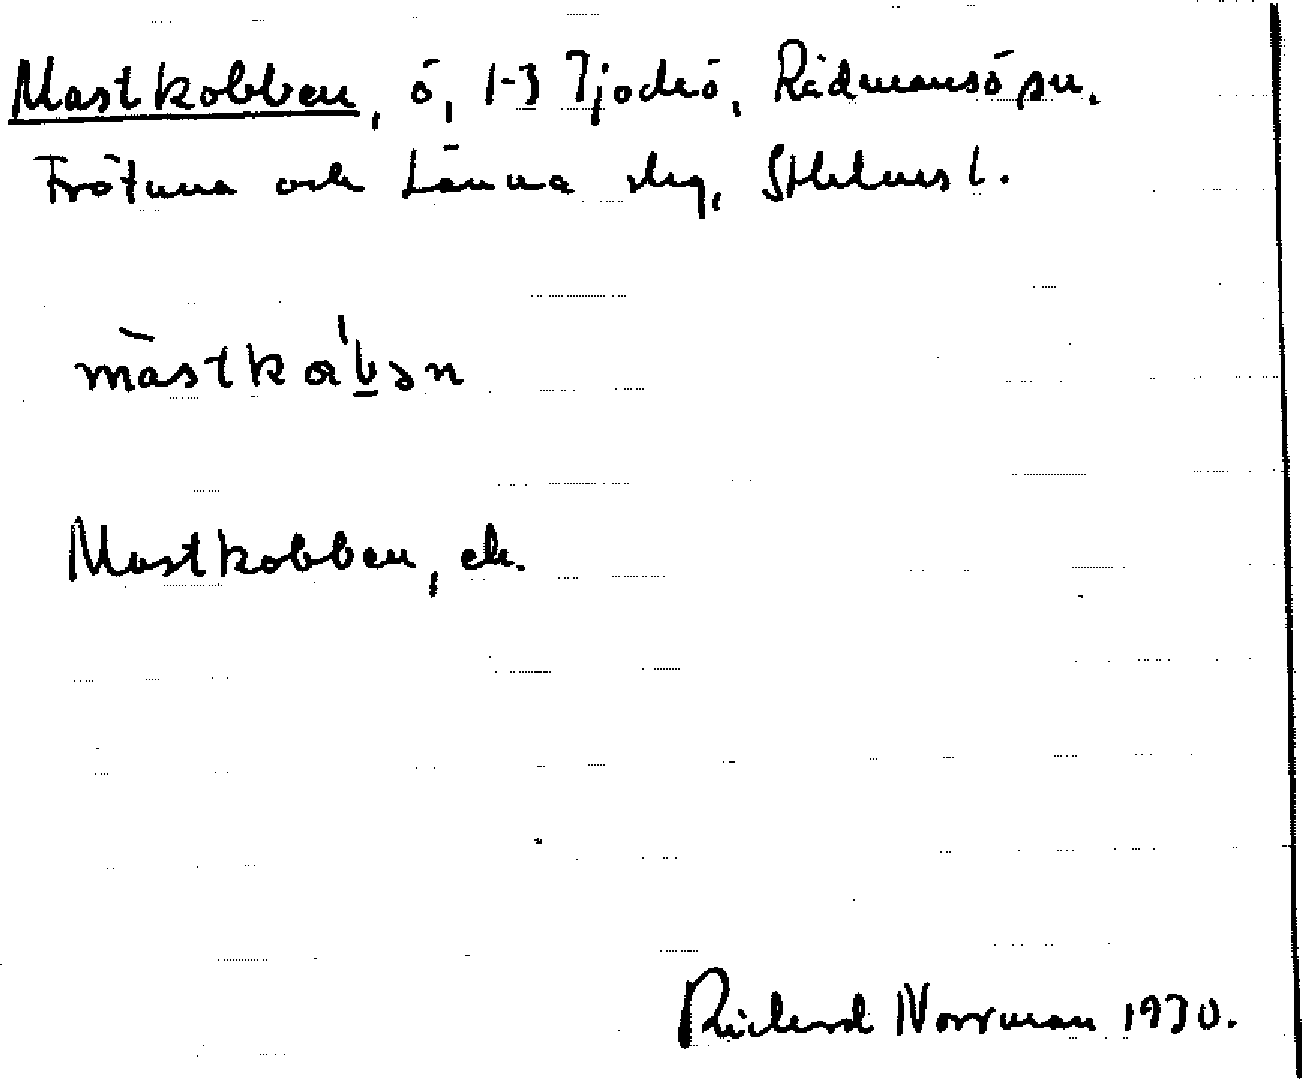 Mastkobben, ö, 1-3 Tjockö, Rådmansö sn.
Frötuna och Länna skg, Sthlms l.
màstkα'b̲ən
Mastkobben, ek.
Richard Norrman 1930.